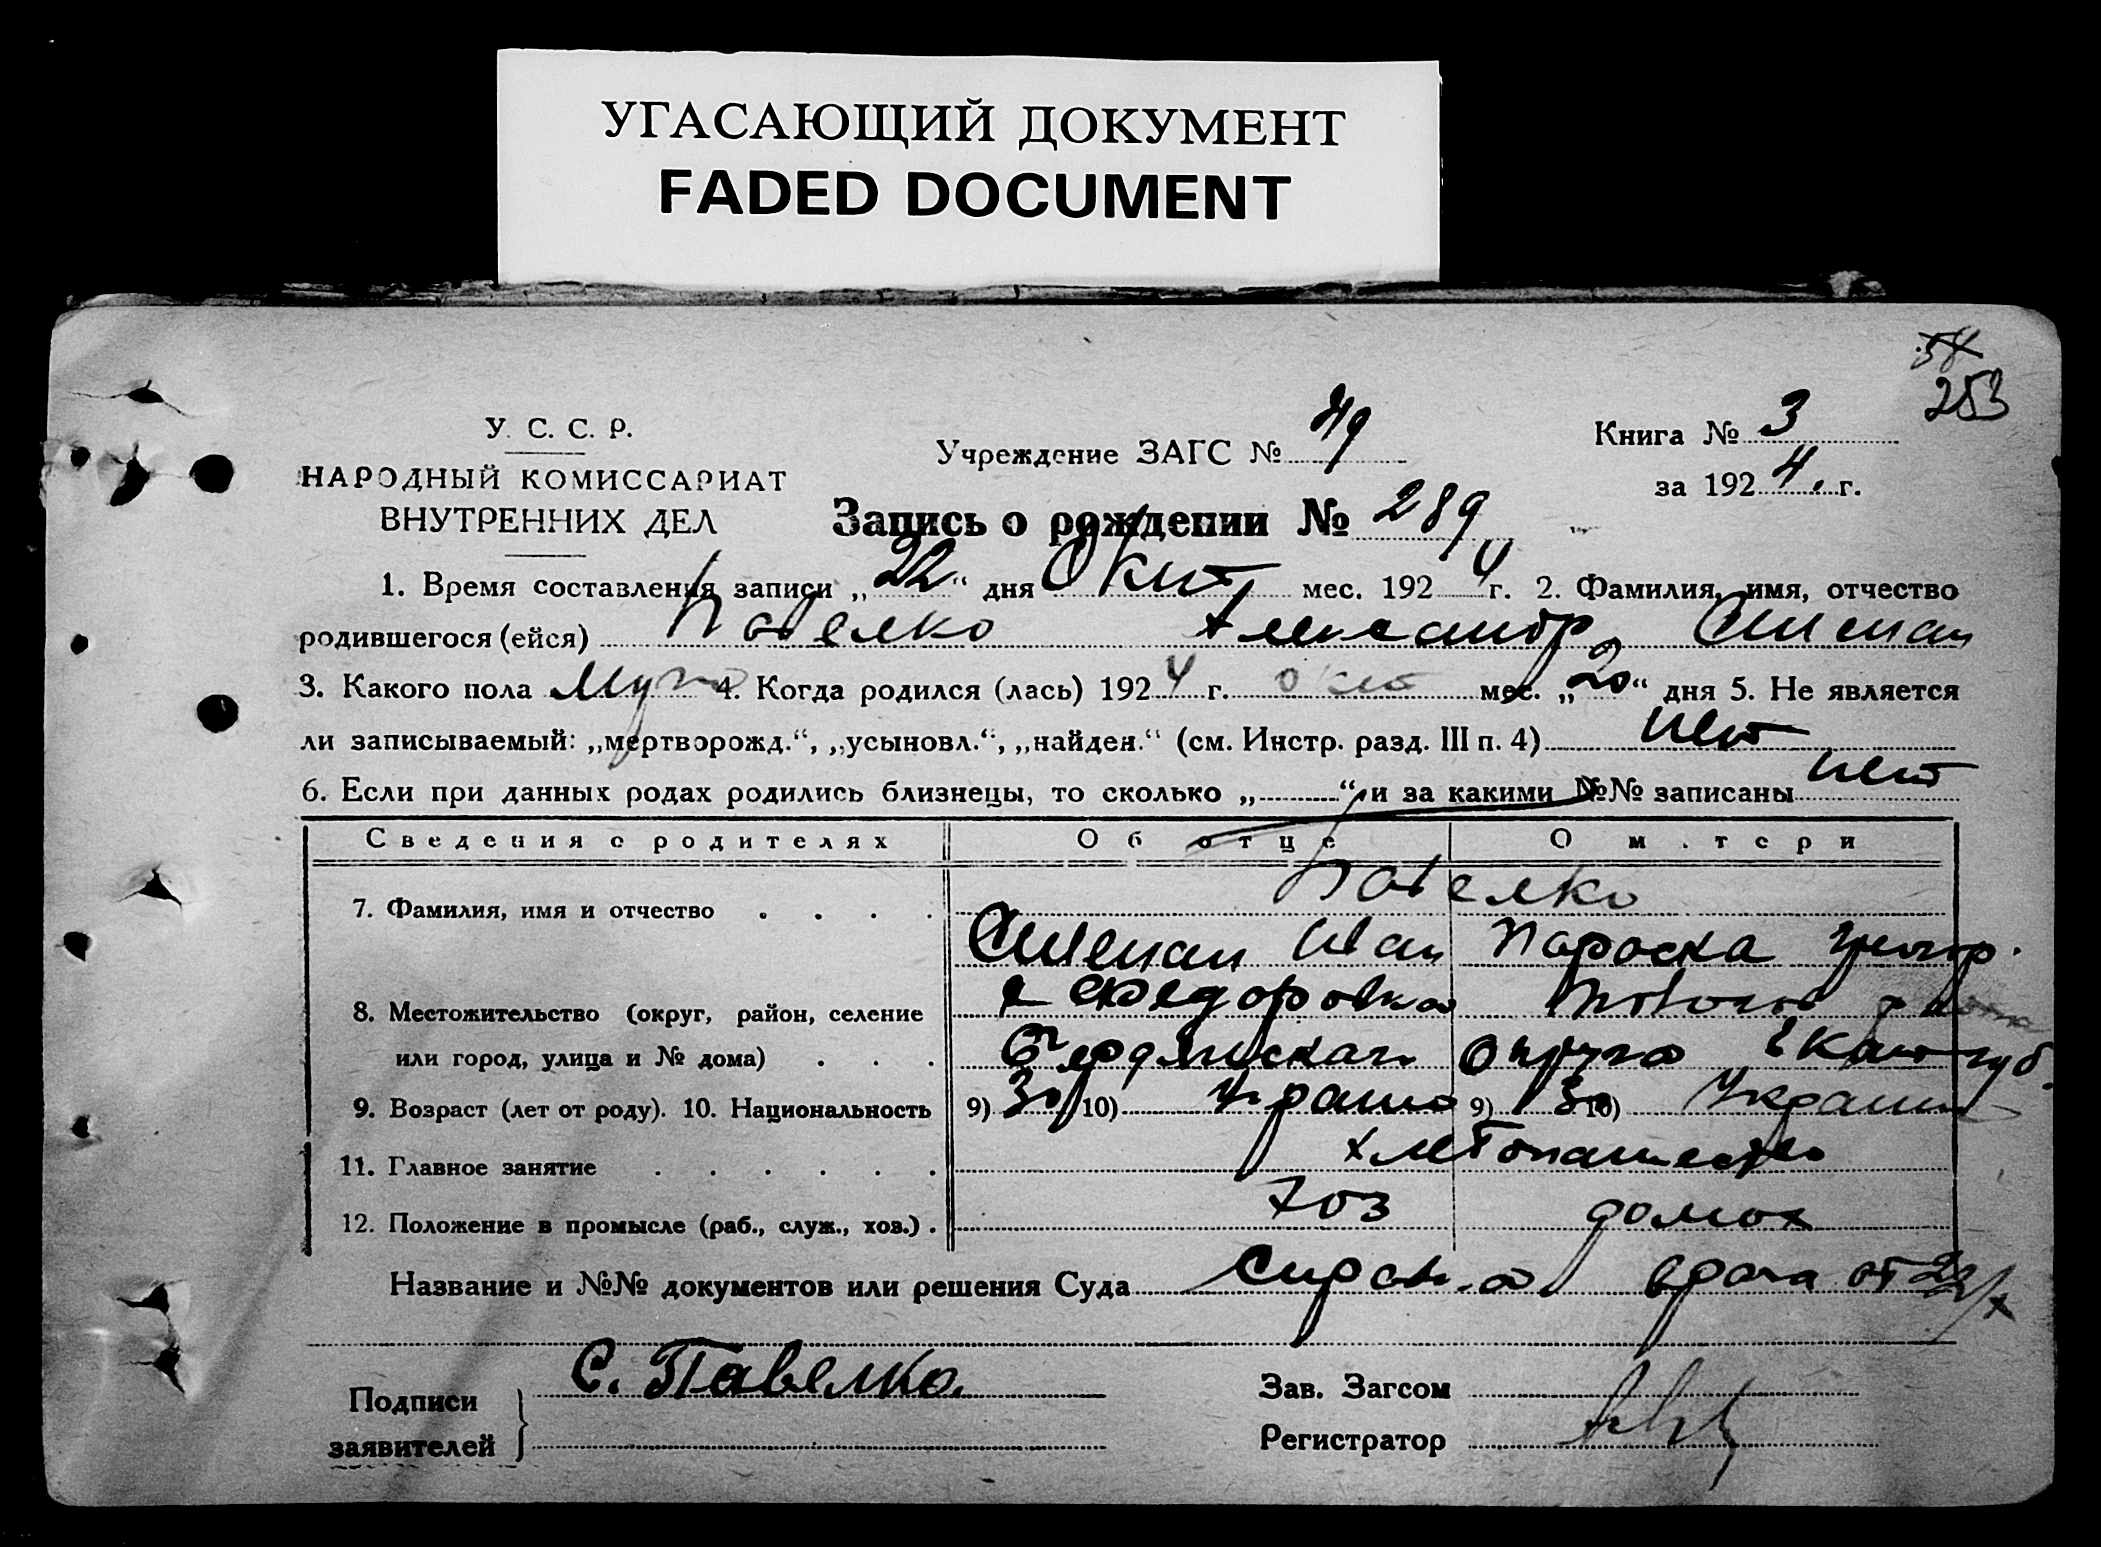 УГАСАЮЩИЙ ДОКУМЕНТ
FADED DOCUMENT
54
253
У. С. С. Р.
НАРОДНЫЙ КОМИССАРИАТ
ВНУТРЕННИХ ДЕЛ
Учреждение ЗАГС №
Книга № 3
за 1924 г.
Запись о рождении № 289
1. Время составления записи „22“ дня Окт мес. 1924 г. 2. Фамилия, имя, отчество
родившегося (ейся) Павелко Александр Степан
3. Какого пола Муж 4. Когда родился (лась) 1924 г. окт мес. „20“ дня 5. Не является
ли записываемый: „мертворожд.“, „усыновл.“, „найден.“ (см. Инстр. разд. III п. 4) нет
6. Если при данных родах родились близнецы, то сколько „ “ и за какими №№ записаны нет
Сведения о родителях Об отце О м . тери
7. Фамилия, имя и отчество Павелко
Степан Иван Параска Григор.
8. Местожительство (округ, район, селение Федоровка района
или город, улица и № дома) Бердянская Округа Екат губ.
9. Возраст (лет от роду). 10. Национальность 9) 30 10) Украин 9) 30 10) Украин
11. Главное занятие хлебопашество
12. Положение в промысле (раб., служ., хоз.) хоз домох
Название и №№ документов или решения Суда Справка врача от 22/X
Подписи заявителей С. Павелко
Зав. Загсом
Регистратор